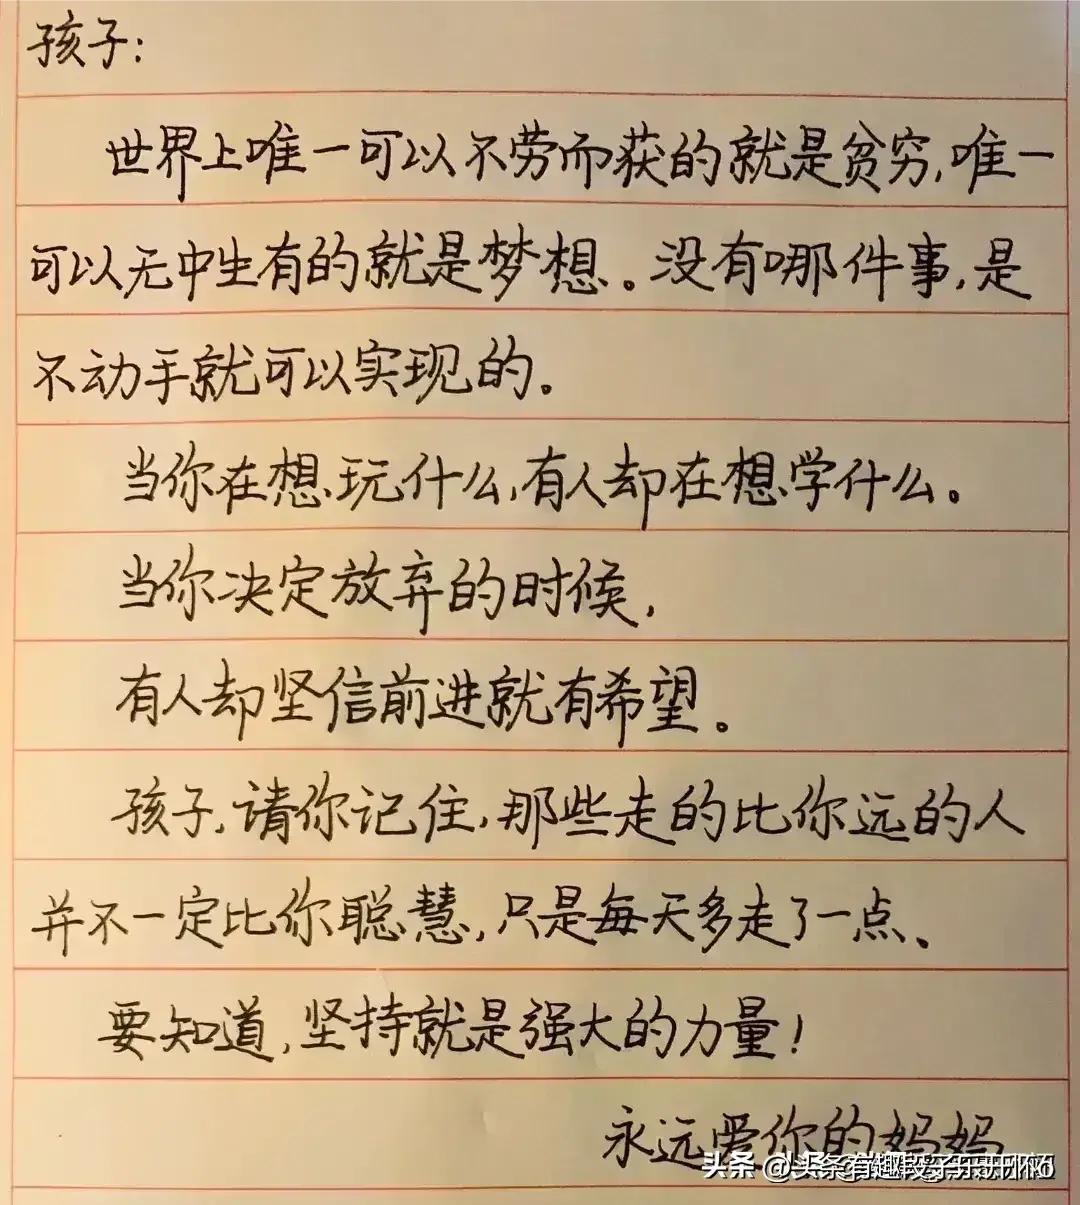 孩子:
世界上唯一可以不劳而获的就是贫穷,唯一
可以无中生有的就是梦想。没有哪件事,是
不动手就可以实现的。
当你在想玩什么,有人却在想学什么。
当你决定放弃的时候,
有人却坚信前进就有希望。
孩子,请你记住,那些走的比你远的人
并不一定比你聪慧,只是每天多走了一点、
要知道,坚持就是强大的力量!
永远爱你的妈妈
头条 @头条有趣段子